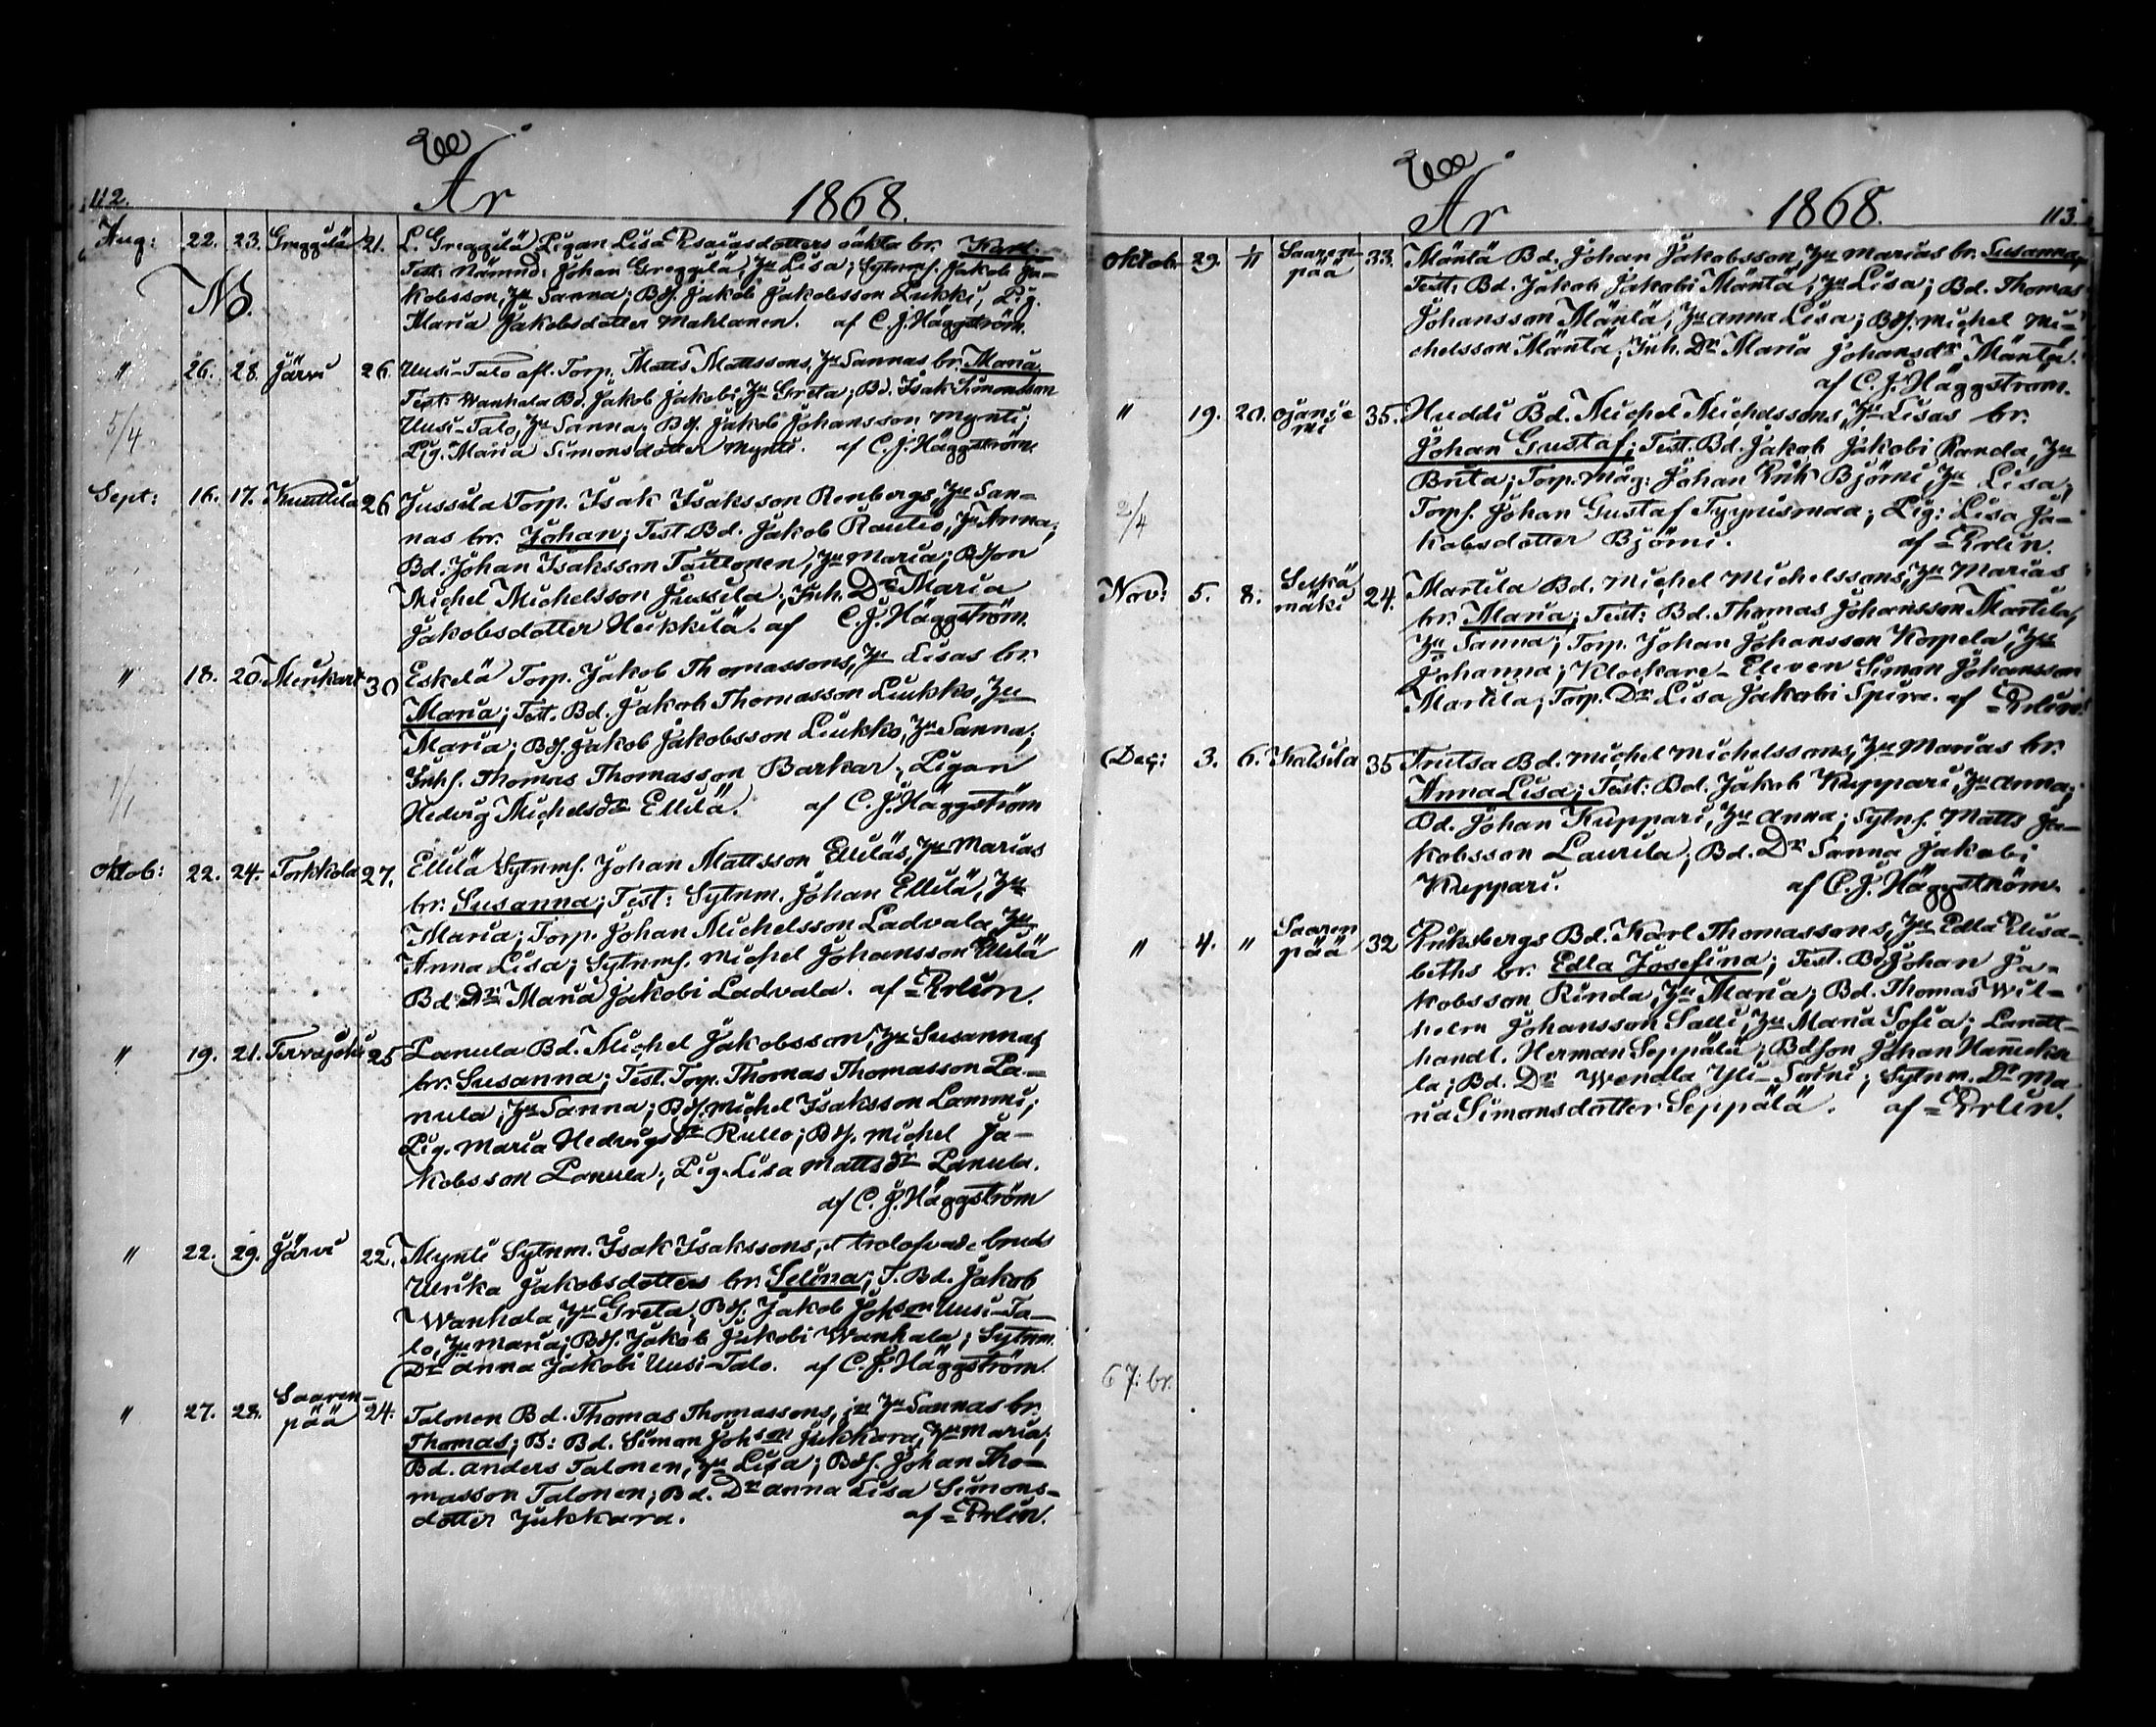 112.
År 1868.
Aug: 22. 23. Greggilä 21. L. Greggilä Pigan Lisa Esaiasdotters oäkta br. Karl.
Test: Nämnd: Johan Greggilä, Hu Lisa; Sytnmf. Jakob Ja-
kobsson, Hu Sanna; Bdf. Jakob Jakobsson Lukki, Pig.
Maria Jakobsdotter Mahlanen. af C. J. Häggström.
" 26. 28. Järvi 26. Uusi-Talo afl. Torp. Matts Mattssons, Hu Sannas br. Maria
Test: Wanhala Bd. Jakob Jakobi, Hu Greta; Bd. Isak Simonsson
5/4 Uusi-Talo, Hu Sanna; Bdf. Jakob Johansson Mynti;
Pig. Maria Simonsdotter Mynti. af C. J. Häggström
Sept: 16. 17. Knuuttila 26 Jussila Torp. Isak Isaksson Renbergs, Hu San-
nas br. Johan; Test Bd. Jakob Rautio, Hu Anna;
Bd. Johan Isaksson Taittonen, Hu Maria; Bdson
Michel Michelsson Jussila; Inh. Dr Maria
Jakobsdotter Heikkilä. af C. J. Häggström.
" 18. 20. Merikart 30 Eskelä Torp. Jakob Thomassons, Hu Lisas br.
Maria; Test. Bd. Jakob Thomasson Liukko, Hu
Maria; Bdf. Jakob Jakobsson Liukko, Hu Sanna;
1/1 Inhf. Thomas Thomasson Barkar, Pigan
Hedvig Michelsdr Ellilä. af C. J. Häggström
Oktob: 22. 24. Torkkola 27. Ellilä Sytnmf. Johan Mattsson Elliläs, Hu Marias
br. Susanna; Test: Sytnm. Johan Ellilä, Hu
Maria; Torp. Johan Michelsson Ladvala, Hu
Anna Lisa; Sytnmf. Michel Johansson Ellilä
Bd. Dr Maria Jakobi Ladvala. af Erlin.
" 19. 21. Tervajoki 25 Panula Bd. Michel Jakobsson, Hu Susannas
br. Susanna; Test. Torp. Thomas Thomasson Pa-
nula, Hu Sanna; Bdf. Michel Isaksson Lammi;
Pig. Maria Hedvigsdr Rullo; Bdf. Michel Ja-
kobsson Panula, Pig. Lisa Mattsdr Panula.
af C. J. Häggström
" 22. 29. Järvi 22. Mynti Sytnm. Isak Isakssons, trolofvade bruds
Ulrika Jakobsdotters br. Selina; T. Bd. Jakob
Wanhala, Hu Greta; Bdf. Jakob Johson Uusi-Ta-
lo, Hu Maria; Bdf. Jakob Jakobi Wanhala; Sytnm.
Dr Anna Jakobi Uusi-Talo. af C. J. Häggström.
" 27. 28. Saaren-
pää 24. Talonen Bd. Thomas Thomassons, Hu Sannas br.
Thomas; B: Bd. Simon Johson Jukkara, Hu Maria;
Bd. Anders Talonen, Hu Lisa; Bdf. Johan Tho-
masson Talonen; Bd. Dr Anna Lisa Simons-
dotter Jukkara. af Erlin.
År 1868. 113.
Oktob. 29. 1/11 Saaren
pää 33. Mäntä Bd. Johan Jakobsson, Hu Marias br. Susanna,
Test: Bd. Jakob Jakobi Mäntä, Hu Lisa; Bd. Thomas
Johansson Mäntä, Hu Anna Lisa; Bdf. Michel Mi-
chelsson Mäntä, Inh. Dr Maria Johansdr Mäntä.
af C. J. Häggström.
" 19. 20. 35. Huddi Bd. Michel Michelssons, Hu Lisas br.
Johan Gustaf; Test. Bd. Jakob Jakobi Randa, Hu
Brita; Torp. Måg: Johan Erik Björni, Hu Lisa;
2/4 Torpf. Johan Gustaf Tyynismaa; Pig: Lisa Ja-
kobsdotter Björni. af Erlin.
Nov: 5. 8. mäki 24. Martila Bd. Michel Michelssons, Hu Marias
br. Maria; Test: Bd. Thomas Johansson Martila,
Hu Sanna; Torp. Johan Johansson Korpela, Hu
Johanna; Klockare-Eleven Simon Johansson
Martila; Torp. Dr Lisa Jakobi Spira. af Erlin.
Dec: 3. 6. Kalsila 35 Truitsa Bd. Michel Michelssons, Hu Marias br.
Anna Lisa; Test: Bd. Jakob Kuppari, Hu Anna;
Bd. Johan Kuppari, Hu Anna; Sytnf. Matts Ja-
kobsson Laurila; Bd. Dr Sanna Jakobi
Kuppari. af C. J. Häggström.
" 4. " Saaren
pää 32 Eriksbergs Bd. Karl Thomassons, Hu Edla Elisa-
beths br. Edla Josefina; Test. Bd. Johan Ja-
kobsson Rinda, Hu Maria; Bd. Thomas Wil-
helm Johansson Salli, Hu Maria Sofia; Landt-
handl. Herman Seppälä; Bdson Johan
la; Bd. Dr Wendla Yli-; Sytnm. Dr Ma
ria Simonsdotter Seppälä. af Erlin.
67. br.